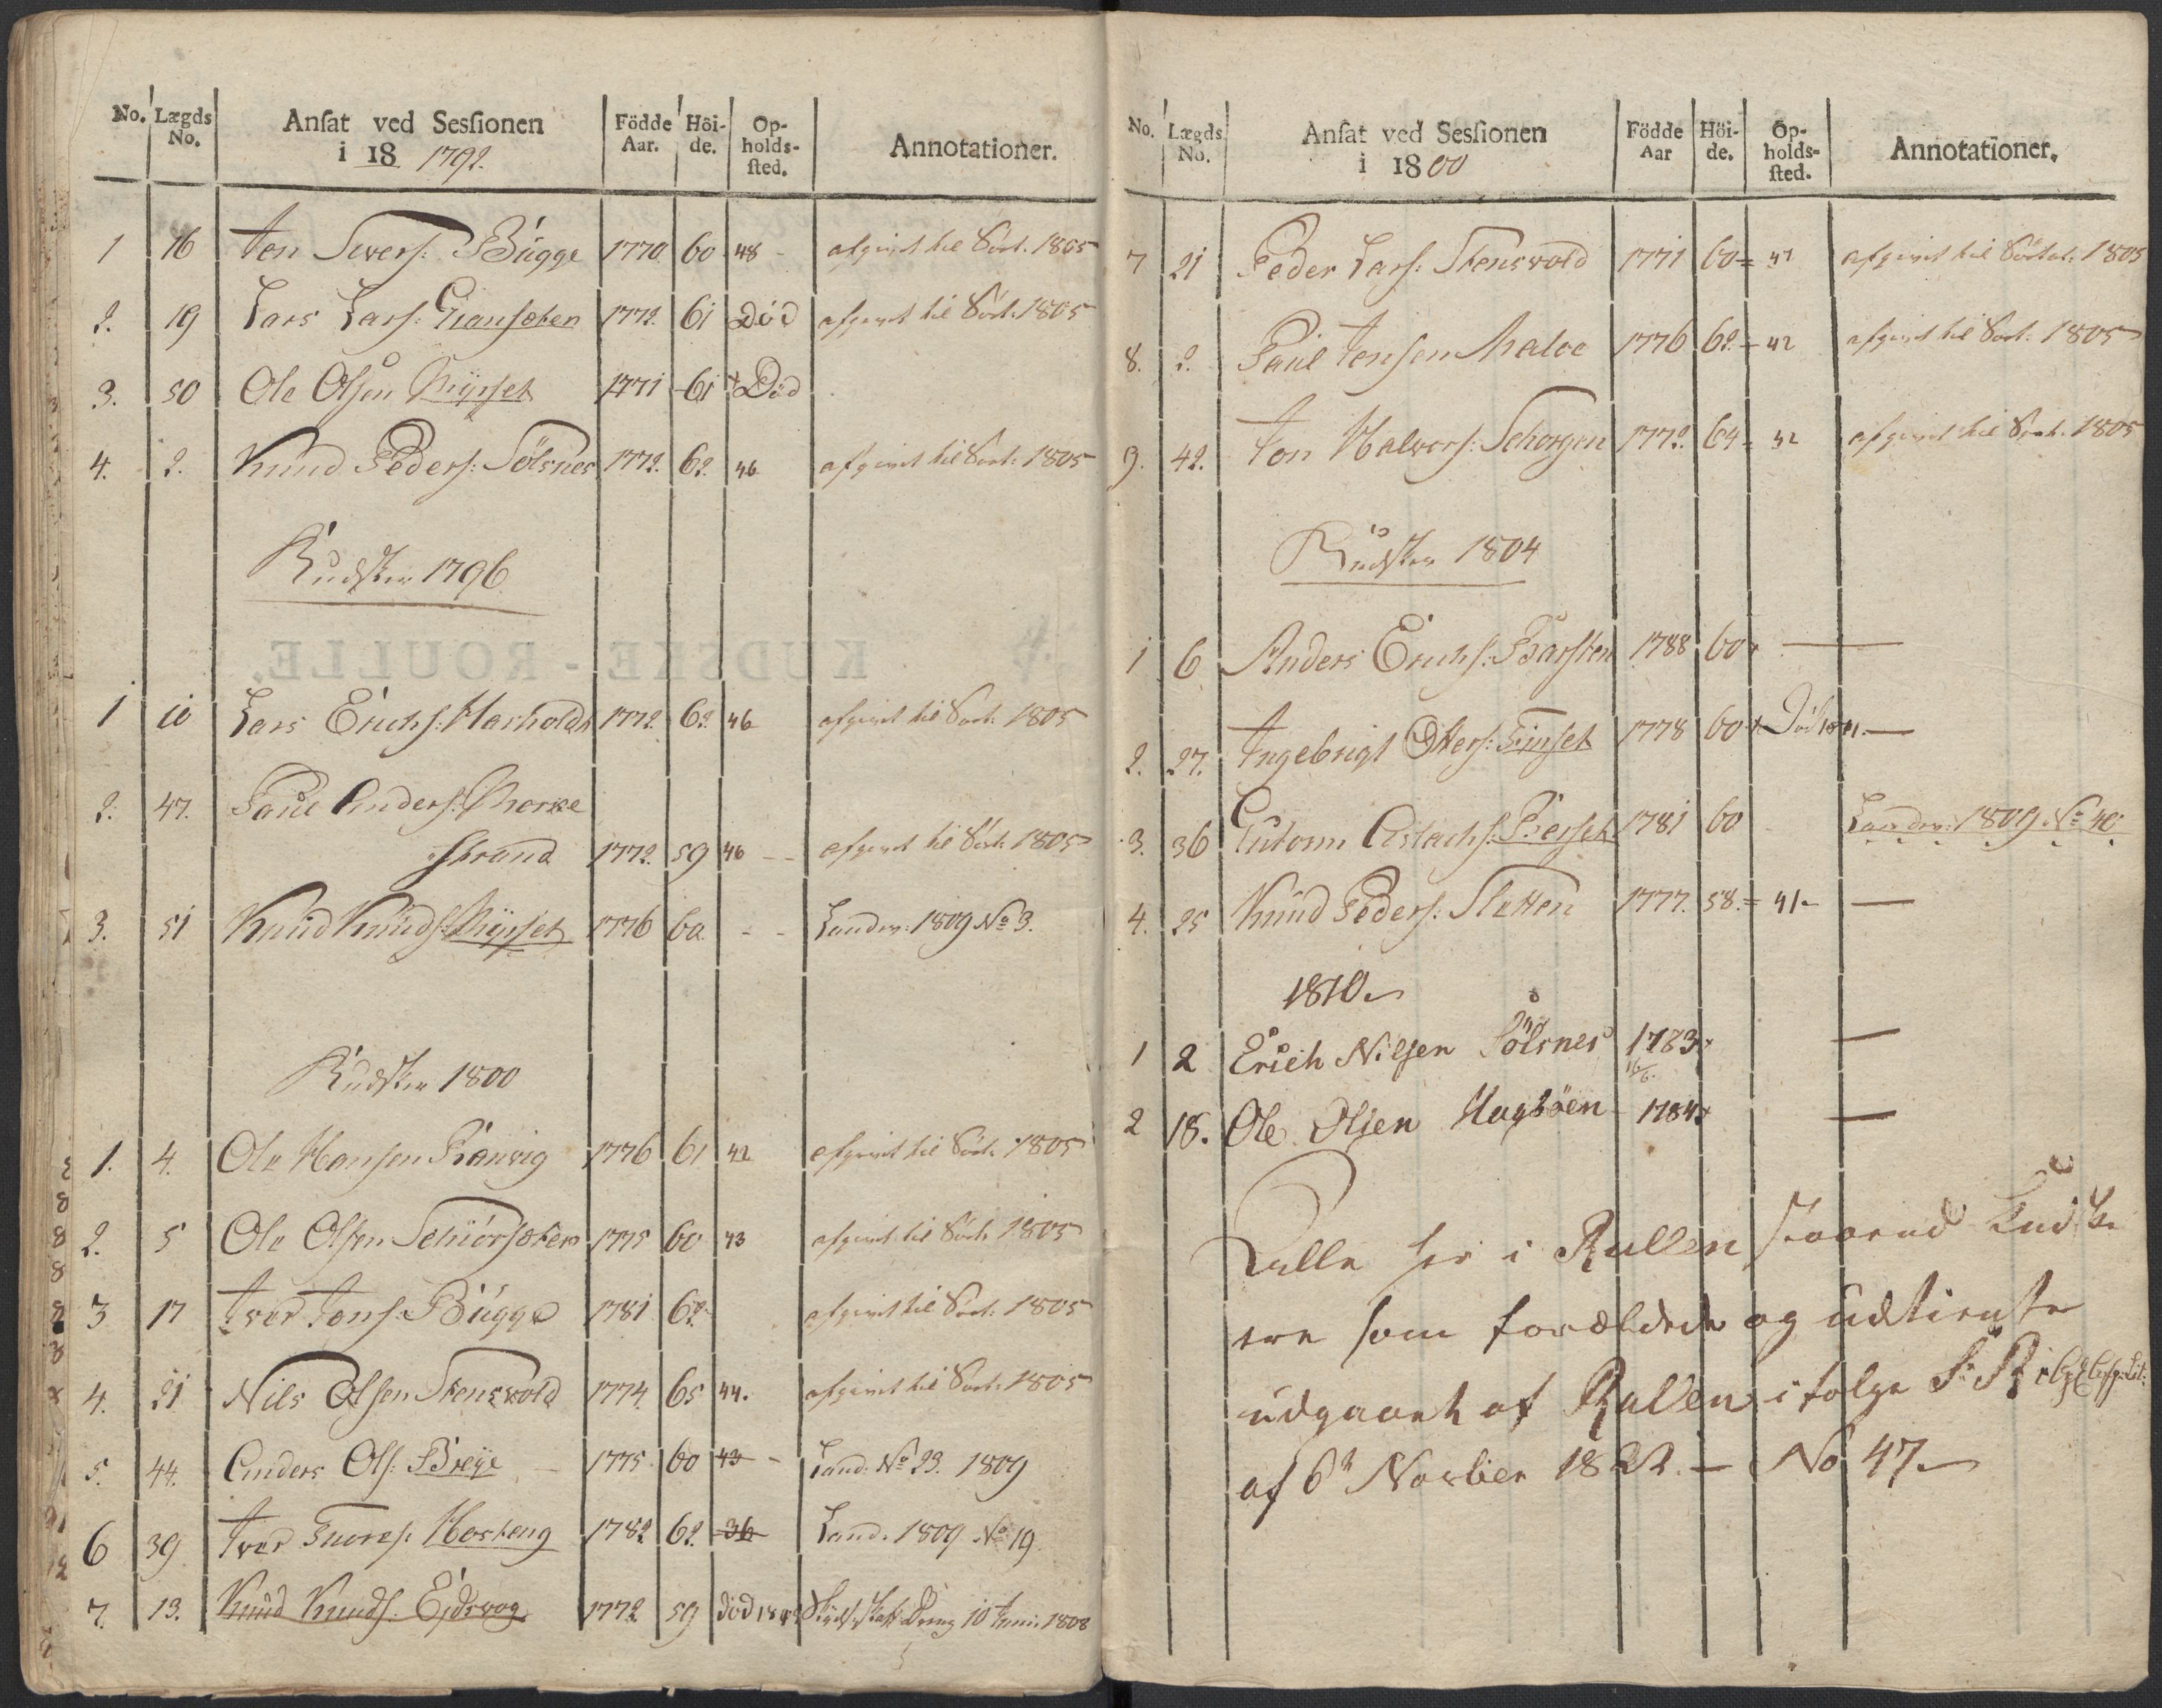 No. Lægds No. Ansat ved Sessionen i 18 1792. Födde Aar. Höi-de. Op-holds-sted. Annotationer.
1 16 Jon Sivers: Bugge 1770 60 48 - afgivet til 1805
2. 19 Lars Lars: Gransæten 1772. 61 Död afgivet til 1805
3. 50 Ole Olsen Myrset 1771 61 Död
4. 2. Knud Peders: Sölsnes 1772. 62. 46 afgivet til 1805
Kudsker 1796.
1 10 Lars Erichs: Harholdt 1772. 62 46 afgivet til 1805
2. 47. Paul Anders: Morke
strand 1772. 59 46 - - afgivet til 1805
3. 51 Knud Knuds: Myrset 1776 60. - - Landev: 1809 No 3.
Kudsker 1800
1. 4. Ole Hansen Ranvig 1776 61 42 afgivet til 1805
2. 5 Ole Olsen Schiörsæter 1775 60 43 afgivet til 1805
3 17 Iver Jons: Bugge 1781 62. afgivet til 1805
4. 21 Nils Olsen Stensvold 1774 65 44. afgivet til 1805
5. 44. Anders Ols: Breye - 1775. 60 43 - Land: No 23. 1809
6 39 Iver Tores: Horteng 1782 62. 36 Land. 1809 No 19.
7. 13. Knud Knuds: Ejdsvog 1772 59 död 10 Juni 1808
No. Lægds No. Ansat ved Sessionen i 1800 Födde Aar Höi-de. Op-holds-sted. Annotationer.
7 21 Peder Lars: Stensvold 1771 60 = 47 afgivet til 1805
8. 2. Paul Jensen Maloe 1776 62. - 42 afgivet til 1805
9. 42. Jon Halvors: Schorgen 1772. 64 - 42 afgivet til 1805
Kudsker 1804
1 6 Anders Erichs: Barsten 1788 60. —
2. 27. Ingebrigt Oles: Tünset 1778 60 + Död —
3. 36 Gutorm Aslachs: Berset 1781 60 Landev: 1809. No 40.
4. 25 Knud Peders: Sletten 1777. 58. = 41 - —
1810.
1 2 Erich Nilsen Sölsnes 1783. —
16/6.
2 18. Ole Olsen Hagböen 1784 —
alle her i Rullen staaende Kudske
ere som forældede og udtiente
udgaaet af Rullen i følge
af 6te Novber 1822. — No 47.
KUDSKE-ROULLE.